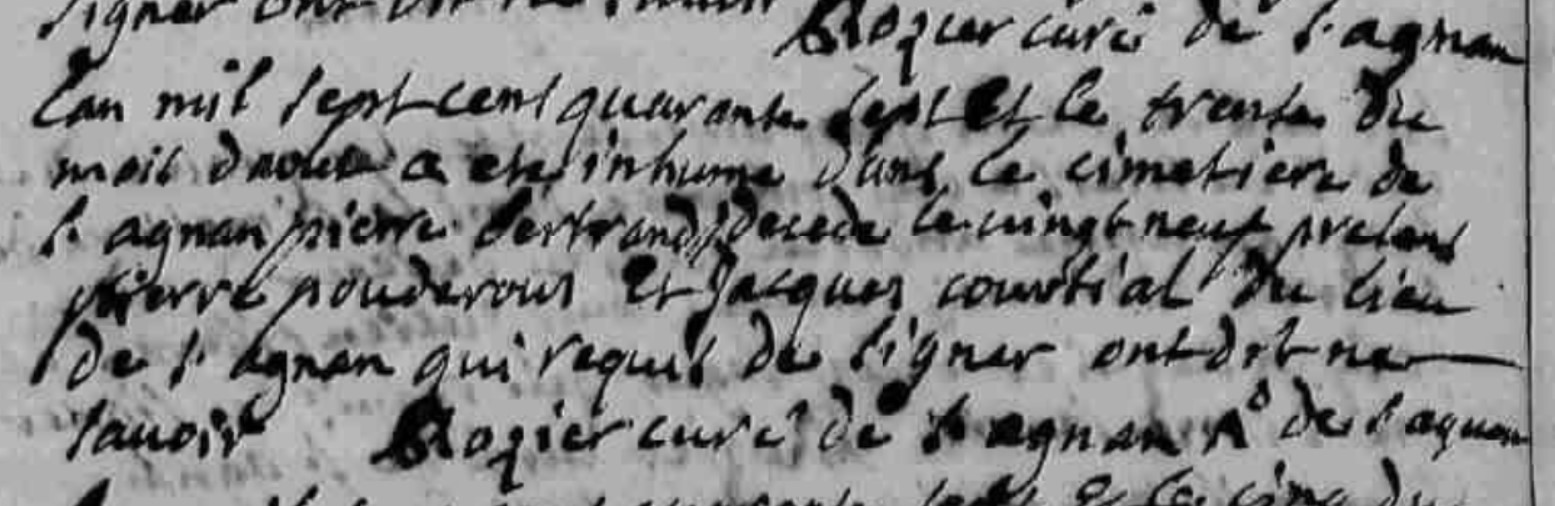 signer ont dit ne sauoir
Rozier curé de s. agnan
Lan mil sept cent quarante sept Et le trente du
mois daout a ete inhume dans le cimetiere de
s. agnan pierre bertrand decede le vingt neuf presens
pierre pouderous Et Jacques courtial du lieu
de s. agnan qui requis de signer ont dit ne
sauoir Rozier curé de s. agnan de s. agnan
quarante sept & le cinq du